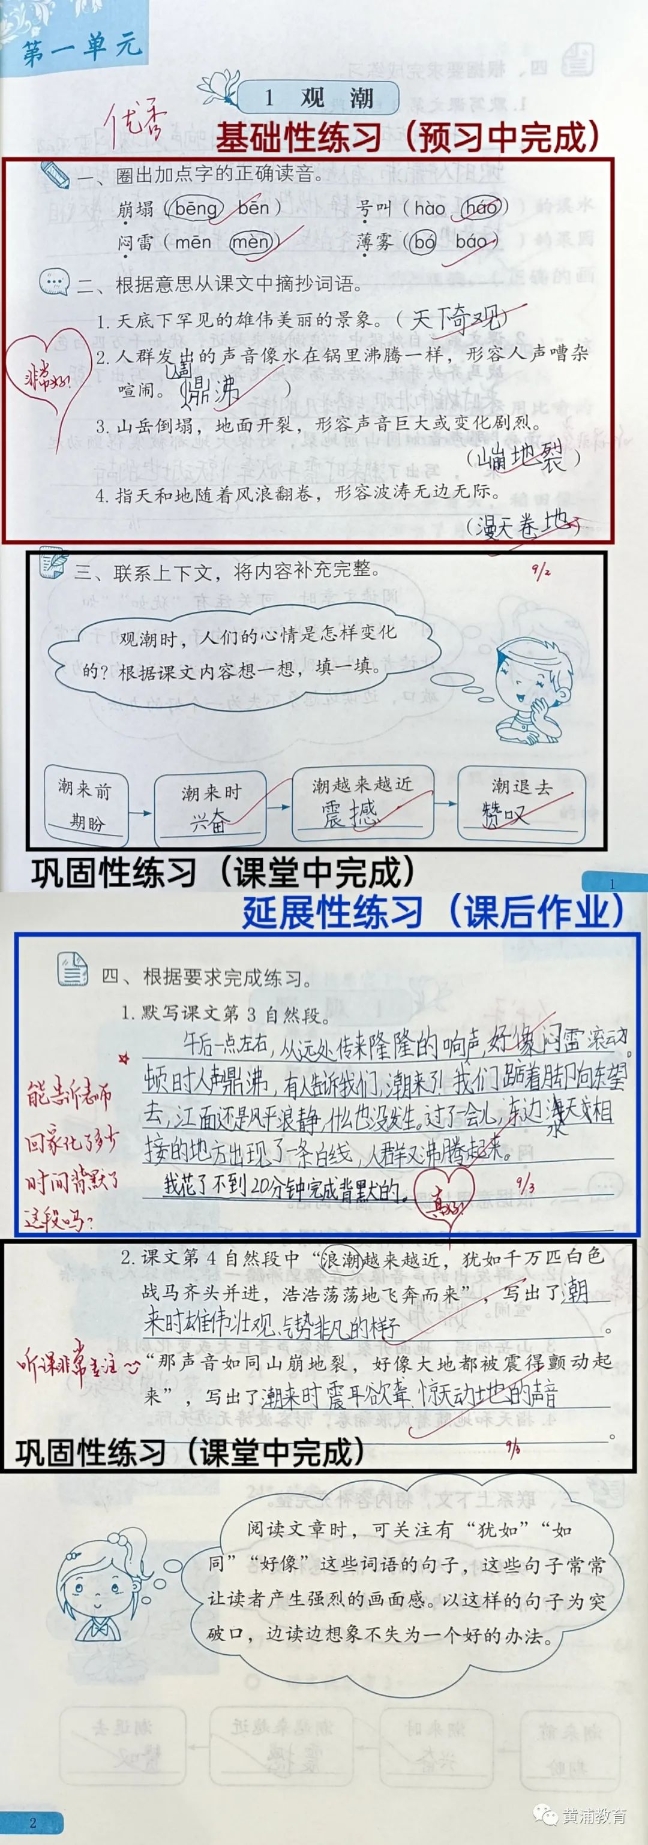 第一单元
1 观潮
优秀
基础性练习（预习中完成）
一、圈出加点字的正确读音。
崩塌（bēng bēn） 号叫（hào háo）
闷雷（mēn mèn） 薄雾（bó báo）
二、根据意思从课文中摘抄词语。
1.天底下罕见的雄伟美丽的景象。（天下奇观）
2.人群发出的声音像水在锅里沸腾一样，形容人声嘈杂
喧闹。（人声鼎沸）
非常好!
3.山岳倒塌，地面开裂，形容声音巨大或变化剧烈。
（山崩地裂）
4.指天和地随着风浪翻卷，形容波涛无边无际。
（漫天卷地）
9/2
三、联系上下文，将内容补充完整。
观潮时，人们的心情是怎样变化
的？根据课文内容想一想，填一填。
潮来前 潮来时 潮越来越近 潮退去
期盼 兴奋 震撼 赞叹
巩固性练习（课堂中完成）
1
延展性练习（课后作业）
四、根据要求完成练习。
1.默写课文第3自然段。
午后一点左右，从远处传来隆隆的响声，好像闷雷滚动。
顿时人声鼎沸，有人告诉我们，潮来了！我们踮着脚向东望
去，江面还是风平浪静，什么也没发生。过了一会儿，东边水天相
接的地方出现了一条白线，人群又沸腾起来。
能告诉老师
回家花了多少
时间背默了
这段吗？
我花了不到20分钟完成背默的。
真好!
9/3
2.课文第4自然段中“浪潮越来越近，犹如千万匹白色
战马齐头并进，浩浩荡荡地飞奔而来”，写出了潮
来时雄伟壮观、气势非凡的样子。
听课非常专注
“那声音如同山崩地裂，好像大地都被震得颤动起
来”，写出了潮来时震耳欲聋、惊天动地的声音
。
9/3
巩固性练习（课堂中完成）
阅读文章时，可关注有“犹如”“如
同”“好像”这些词语的句子，这些句子常常
让读者产生强烈的画面感。以这样的句子为突
破口，边读边想象不失为一个好的办法。
2
黄浦教育